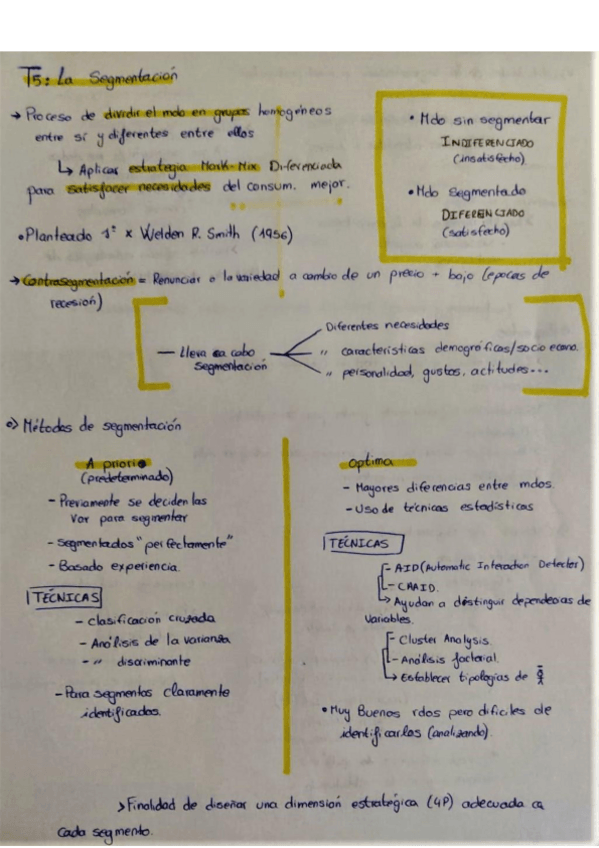 T5: La Segmentación
→ Proceso de dividir el mdo en grupos homogéneos
entre sí y diferentes entre ellos
↳ Aplicar estrategia Mark-Mix Diferenciada
para satisfacer necesidades del consum. mejor.
• Planteado 1º x Welden R. Smith (1956)
• Mdo sin segmentar
INDIFERENCIADO
(insatisfecho)
• Mdo Segmentado
DIFERENCIADO
(satisfecho)
→ Contrasegmentación = Renunciar a la variedad a cambio de un precio + bajo (epocas de
recesión)
— Lleva a cabo
segmentación
Diferentes necesidades
" características demográficas/socioecono.
" personalidad, gustos, actitudes...
o) Métodos de segmentación
A priori
(predeterminado)
- Previamente se deciden las
Var para segmentar
- Segmentados "perfectamente"
- Basado experiencia.
TECNICAS
- Clasificación cruzada
- Análisis de la varianza
- " discriminante
- Para segmentos claramente
identificados.
Optima
- Mayores diferencias entre mdos.
- Uso de técnicas estadísticas
TÉCNICAS
- AID (Automatic Interaction Detector)
- CHAID.
→ Ayudan a distinguir dependecias de
Variables.
- Cluster Analysis.
- Análisis factorial.
→ Establecer tipologías de
• Muy Buenos rdos pero dificiles de
identificarlos (analizando).
> Finalidad de diseñar una dimensión estratégica (4P) adecuada a
cada segmento.